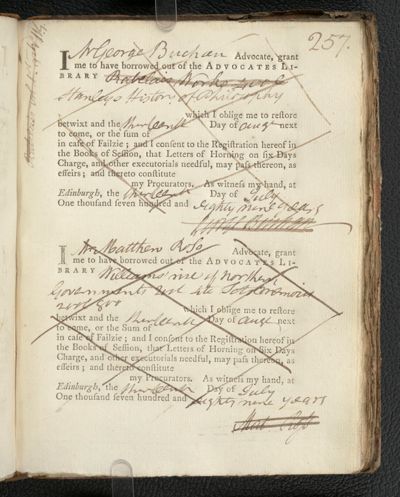 257.
I, Mr George Buchan Advocate, grant
me to have borrowed out of the ADVOCATES LI-
BRARY Rabelais Works
Stanleys History of Philosophy
which I oblige me to restore
betwixt and the thirteenth Day of augt next
to come, or the sum of
in case of Failzie; and I consent to the Registration hereof in
the Books of Session, that Letters of Horning on six Days
Charge, and other executorials needful, may pass thereon, as
effeirs; and thereto constitute
my Procurators. As witness my hand, at
Edinburgh, the thirteenth Day of July
One thousand seven hundred and eighty nine years
I, Mr Matthew Ross Advocate, grant
me to have borrowed out of the ADVOCATES LI-
BRARY Williams rise of Northern
Governments
which I oblige me to restore
betwixt and the thirteenth Day of augt next
to come, or the Sum of
in case of Failzie; and I consent to the Registration hereof in
the Books of Session, that Letters of Horning on six Days
Charge, and other executorials needful, may pass thereon, as
effeirs; and thereto constitute
my Procurators. As witness my hand, at
Edinburgh, the thirteenth Day of July
One thousand seven hundred and eighty nine years